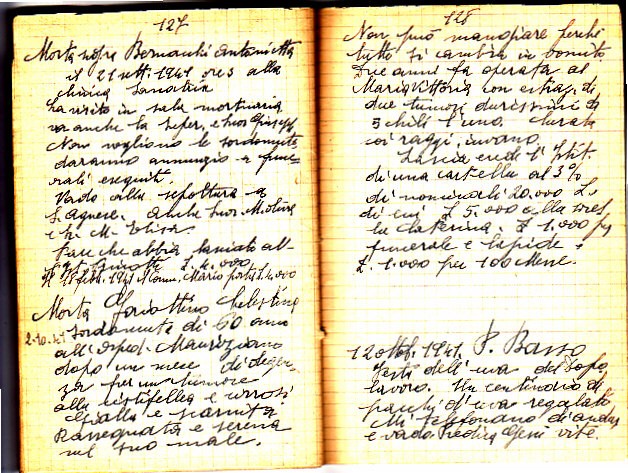 127
Morta nostra Bernacchi Antonietta
il 21 sett. 1941 ore 3 alla
clinica Sanatrix
La visito in sala mortuaria
va anche la Super. e Suor Giuseppi.
Non vogliono le sordomute
daranno annunzio a fune-
rali eseguiti.
Vado alla sepoltura a
S. Agnese. Anche Suor
e Sr. M. Elisa.
Pare che abbia lasciato all'
Istituto L. 4.000.
Il 18 febb. 1942 Mons. Mario portò L. 4.000
Morta Celestina
2-10-41 sordomuta di 60 anni
all'Osped. Mauriziano
dopo un mese di degen-
za per un tumore
alla cistifellea e cirrosi
epatica e
Rassegnata e serena
nel suo male.
128
Non può mangiare perché
tutto si cambia in vomito
Due anni fa operata al
Maria Vittoria con estraz. di
due tumori durissimi da
3 chili l'uno. Curata
coi raggi, invano.
Lascia erede l'Istit.
di una cartella al 3%
di nominali 20.000 L.
di cui L 5.000 alla sorel
la Caterina, L 1.000 per
funerale e lapide e
L. 1.000 per 100 Messe.
12 ottob. 1941. P. Basso
Festa dell'uva del Dopo
lavoro. Un centinaio di
pacchi d'uva regalato
Mi telefonano di andar
e vado. Predica Gesù vite.